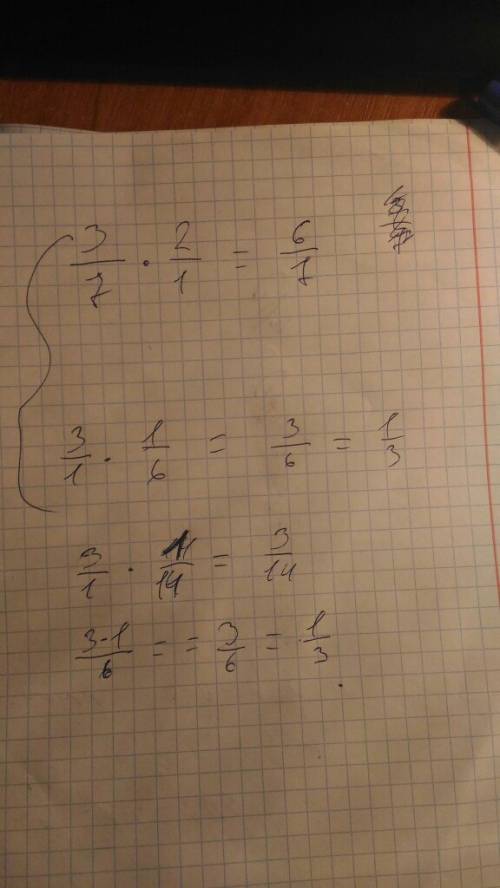 3/7 · 2/1 = 6/7
3/1 · 1/6 = 3/6 = 1/3
3/1 · /14 = 3/14
3·1/6 = = 3/6 = 1/3